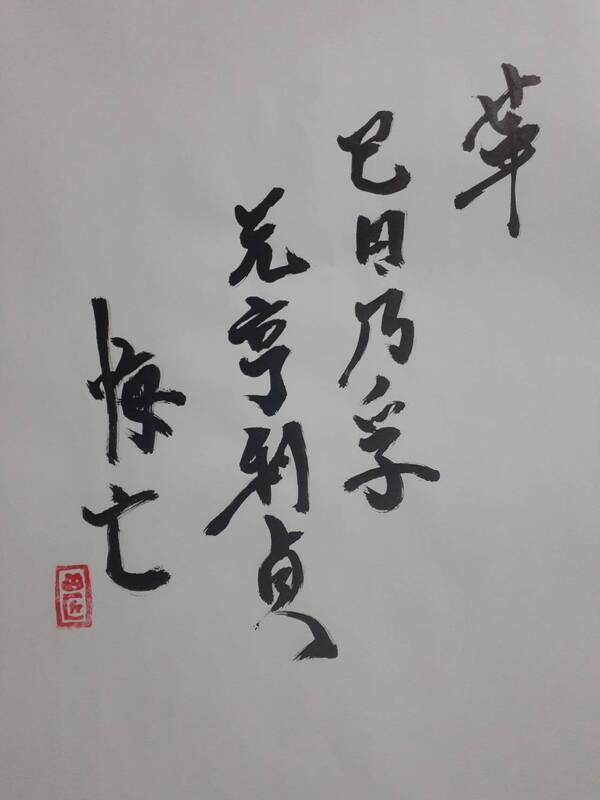 革
巳日乃孚
元亨利貞
悔亡